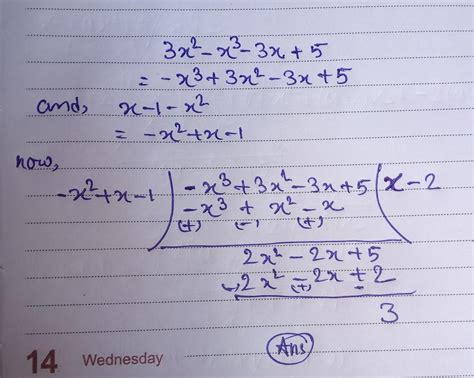 3x² - x³ - 3x + 5
= -x³ + 3x² - 3x + 5
and, x - 1 - x²
= -x² + x - 1
now,
-x² + x - 1 ) -x³ + 3x² - 3x + 5 ( x - 2
-x³ + x² - x
(+) (-) (+)
2x² - 2x + 5
2x² - 2x + 2
(-) (+) -
3
Ans
14 Wednesday